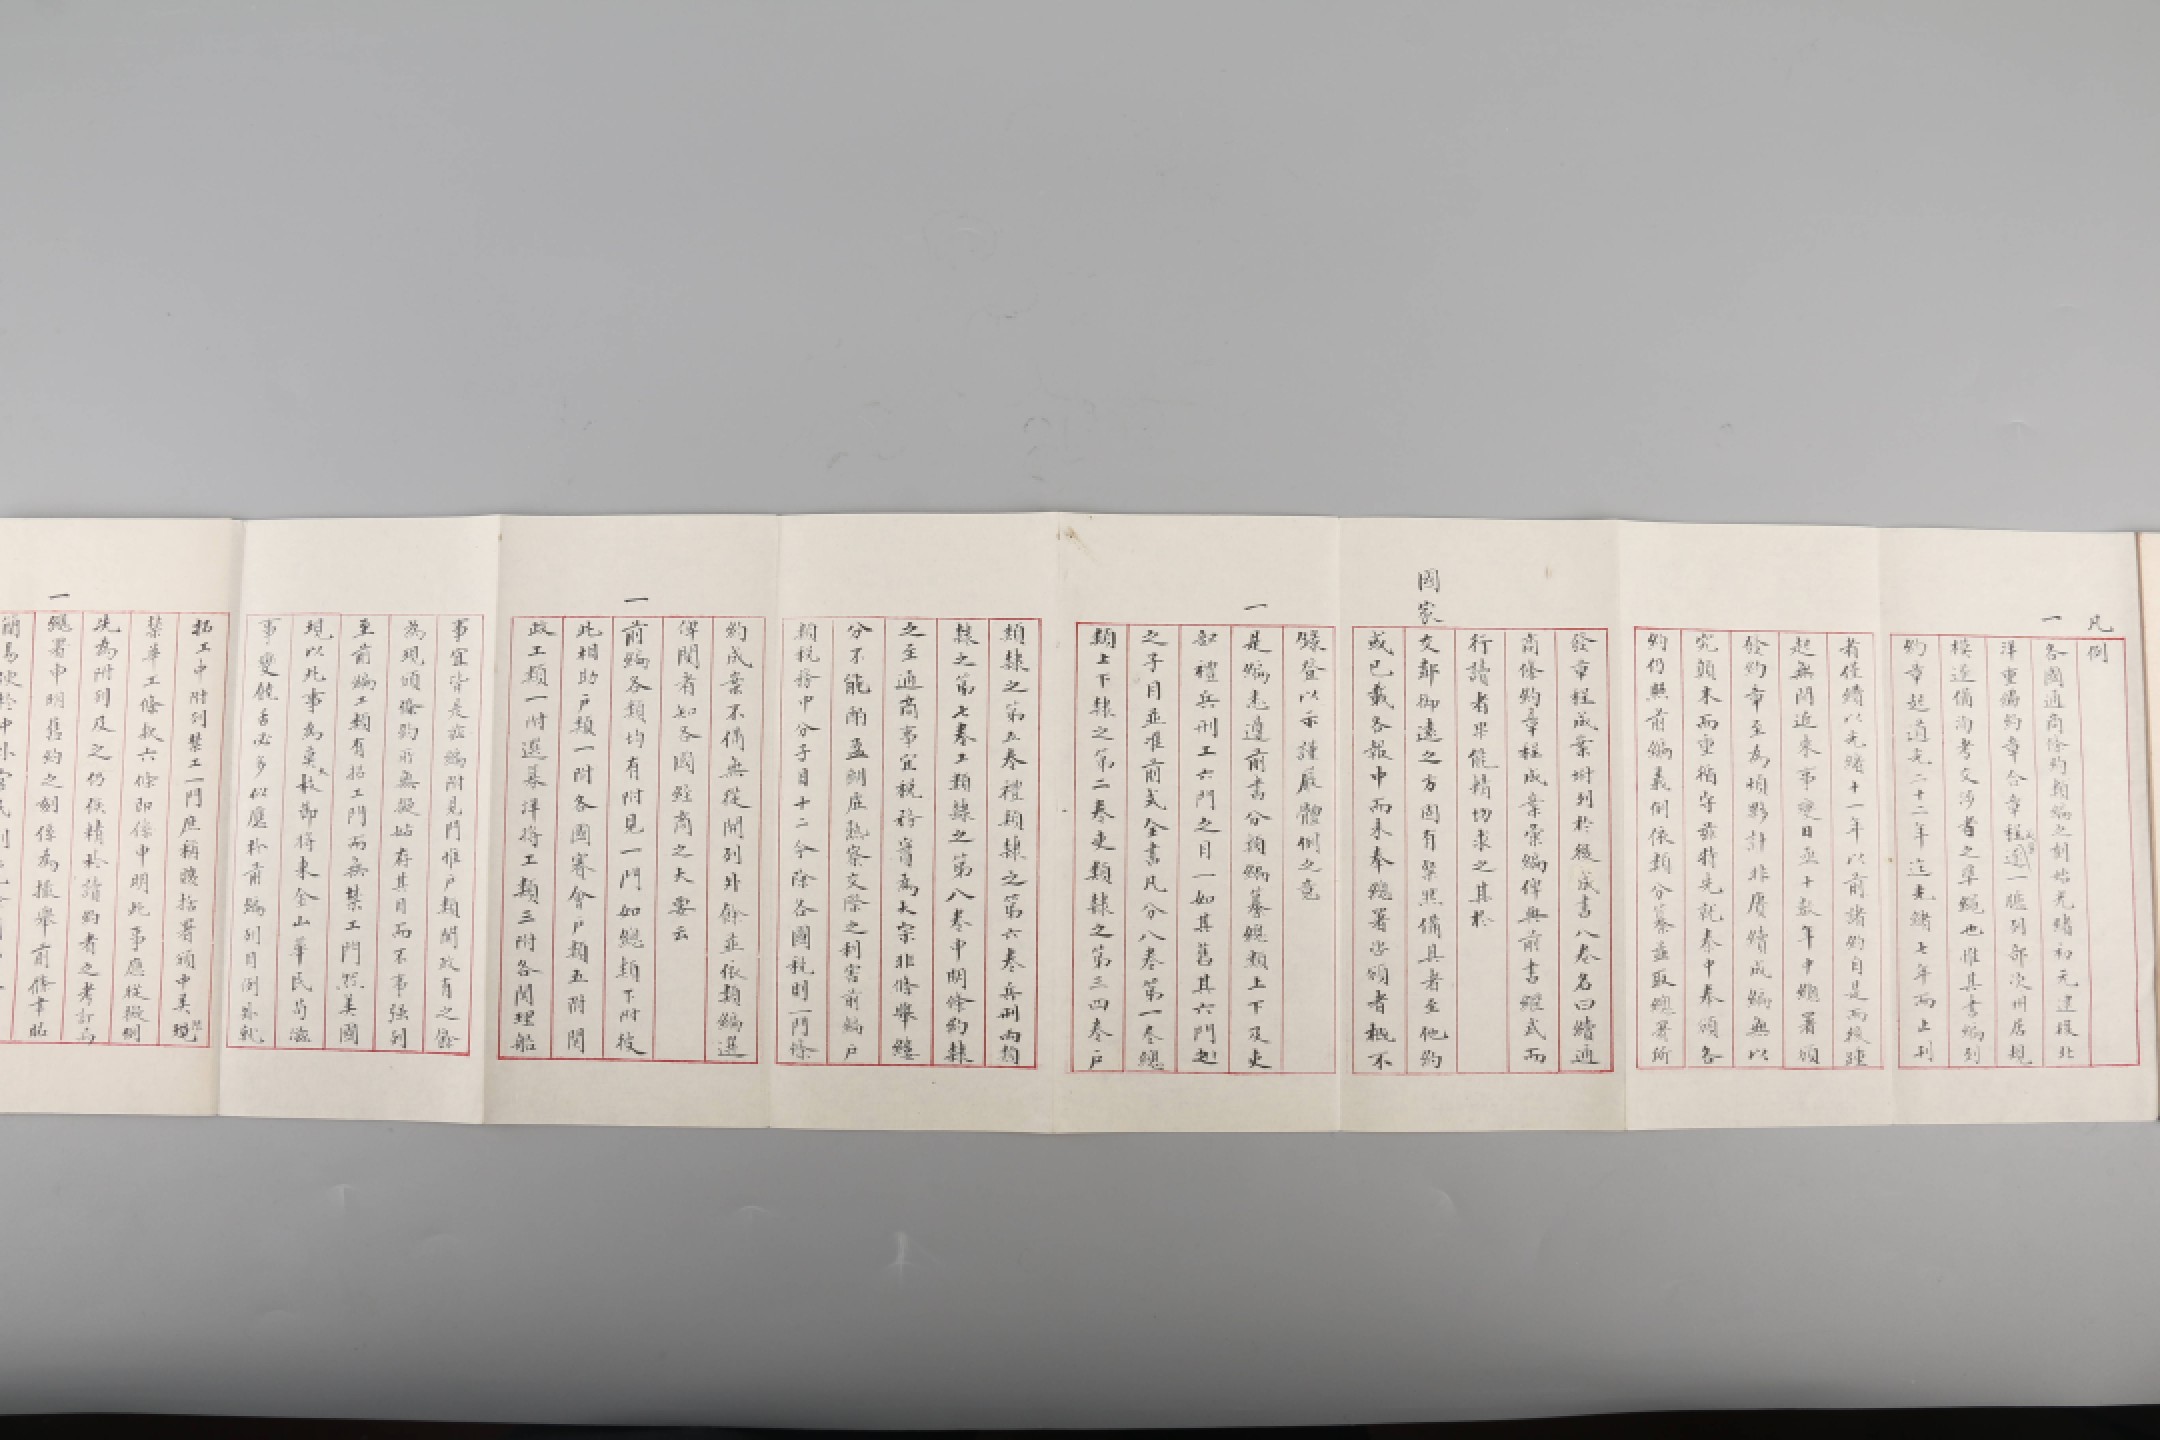 凡例
一各國通商條約類編之刻始光緒初元逮後北
洋重編約章合章程一臚列部次州居規
模遂備洵考交涉者之準繩也惟其書編列
約章起道光二十二年迄光緒七年而止刊
者僅續以光緒十一年以前諸約自是而後踵
起無門近來事變日亟十數年中總署頒
發約章至為煩夥計非賡續成編無以
究顛末而重循守茲特先就奉中奉頒各
約仍照前編義例依類分纂並取總署所
發章程成案坿列於後成書八卷名曰續通
商條約章程成案彙編俾與前書縱式而
行讀者果能精切求之其於
國家交鄰御遠之方固有犂然備具者至他約
或已載各報中而未奉總署咨頒者概不
錄登以示謹嚴體例之意
一是編悉遵前書分類編纂總類上下及吏
戶禮兵刑工六門之目一如其舊其六門
之子目並准前式全書凡分八卷第一卷總
類上下隸之第二卷吏類隸之第三四卷戶
類隸之第五卷禮類隸之第六卷兵刑兩類
隸之第七卷工類隸之第八卷中開條約隸
之至通商事宜稅務實為大宗非條舉縷
分不能酌盈劑虛熟察交際之利害前編戶
類稅務中分子目十二今除各國稅則一門條
約成案不備無從開列外餘並依類編選
俾閱者知各國經商之大要云
一前編各類均有附見一門如總類下附彼
此相助戶類一附各國賽會戶類五附關
政工類一附選募洋將工類三附各關理船
事宜皆是茲編附見門惟戶類關政有之餘
為現頒條約所無擬姑存其目而不事強列
至前編工類有招工門而無禁工門然美國
現以此事為莫大教節將來金山華民苟滋
事變饒舌必多似應於前編列目例外就
招工中附列禁工一門庶稱賅括署頒中美
禁華工條款六條即係申明此事應從徵例
先為附列及之仍俟精於諸約者之考訂焉
一總署申明舊約之刻係為撮舉前條聿昭